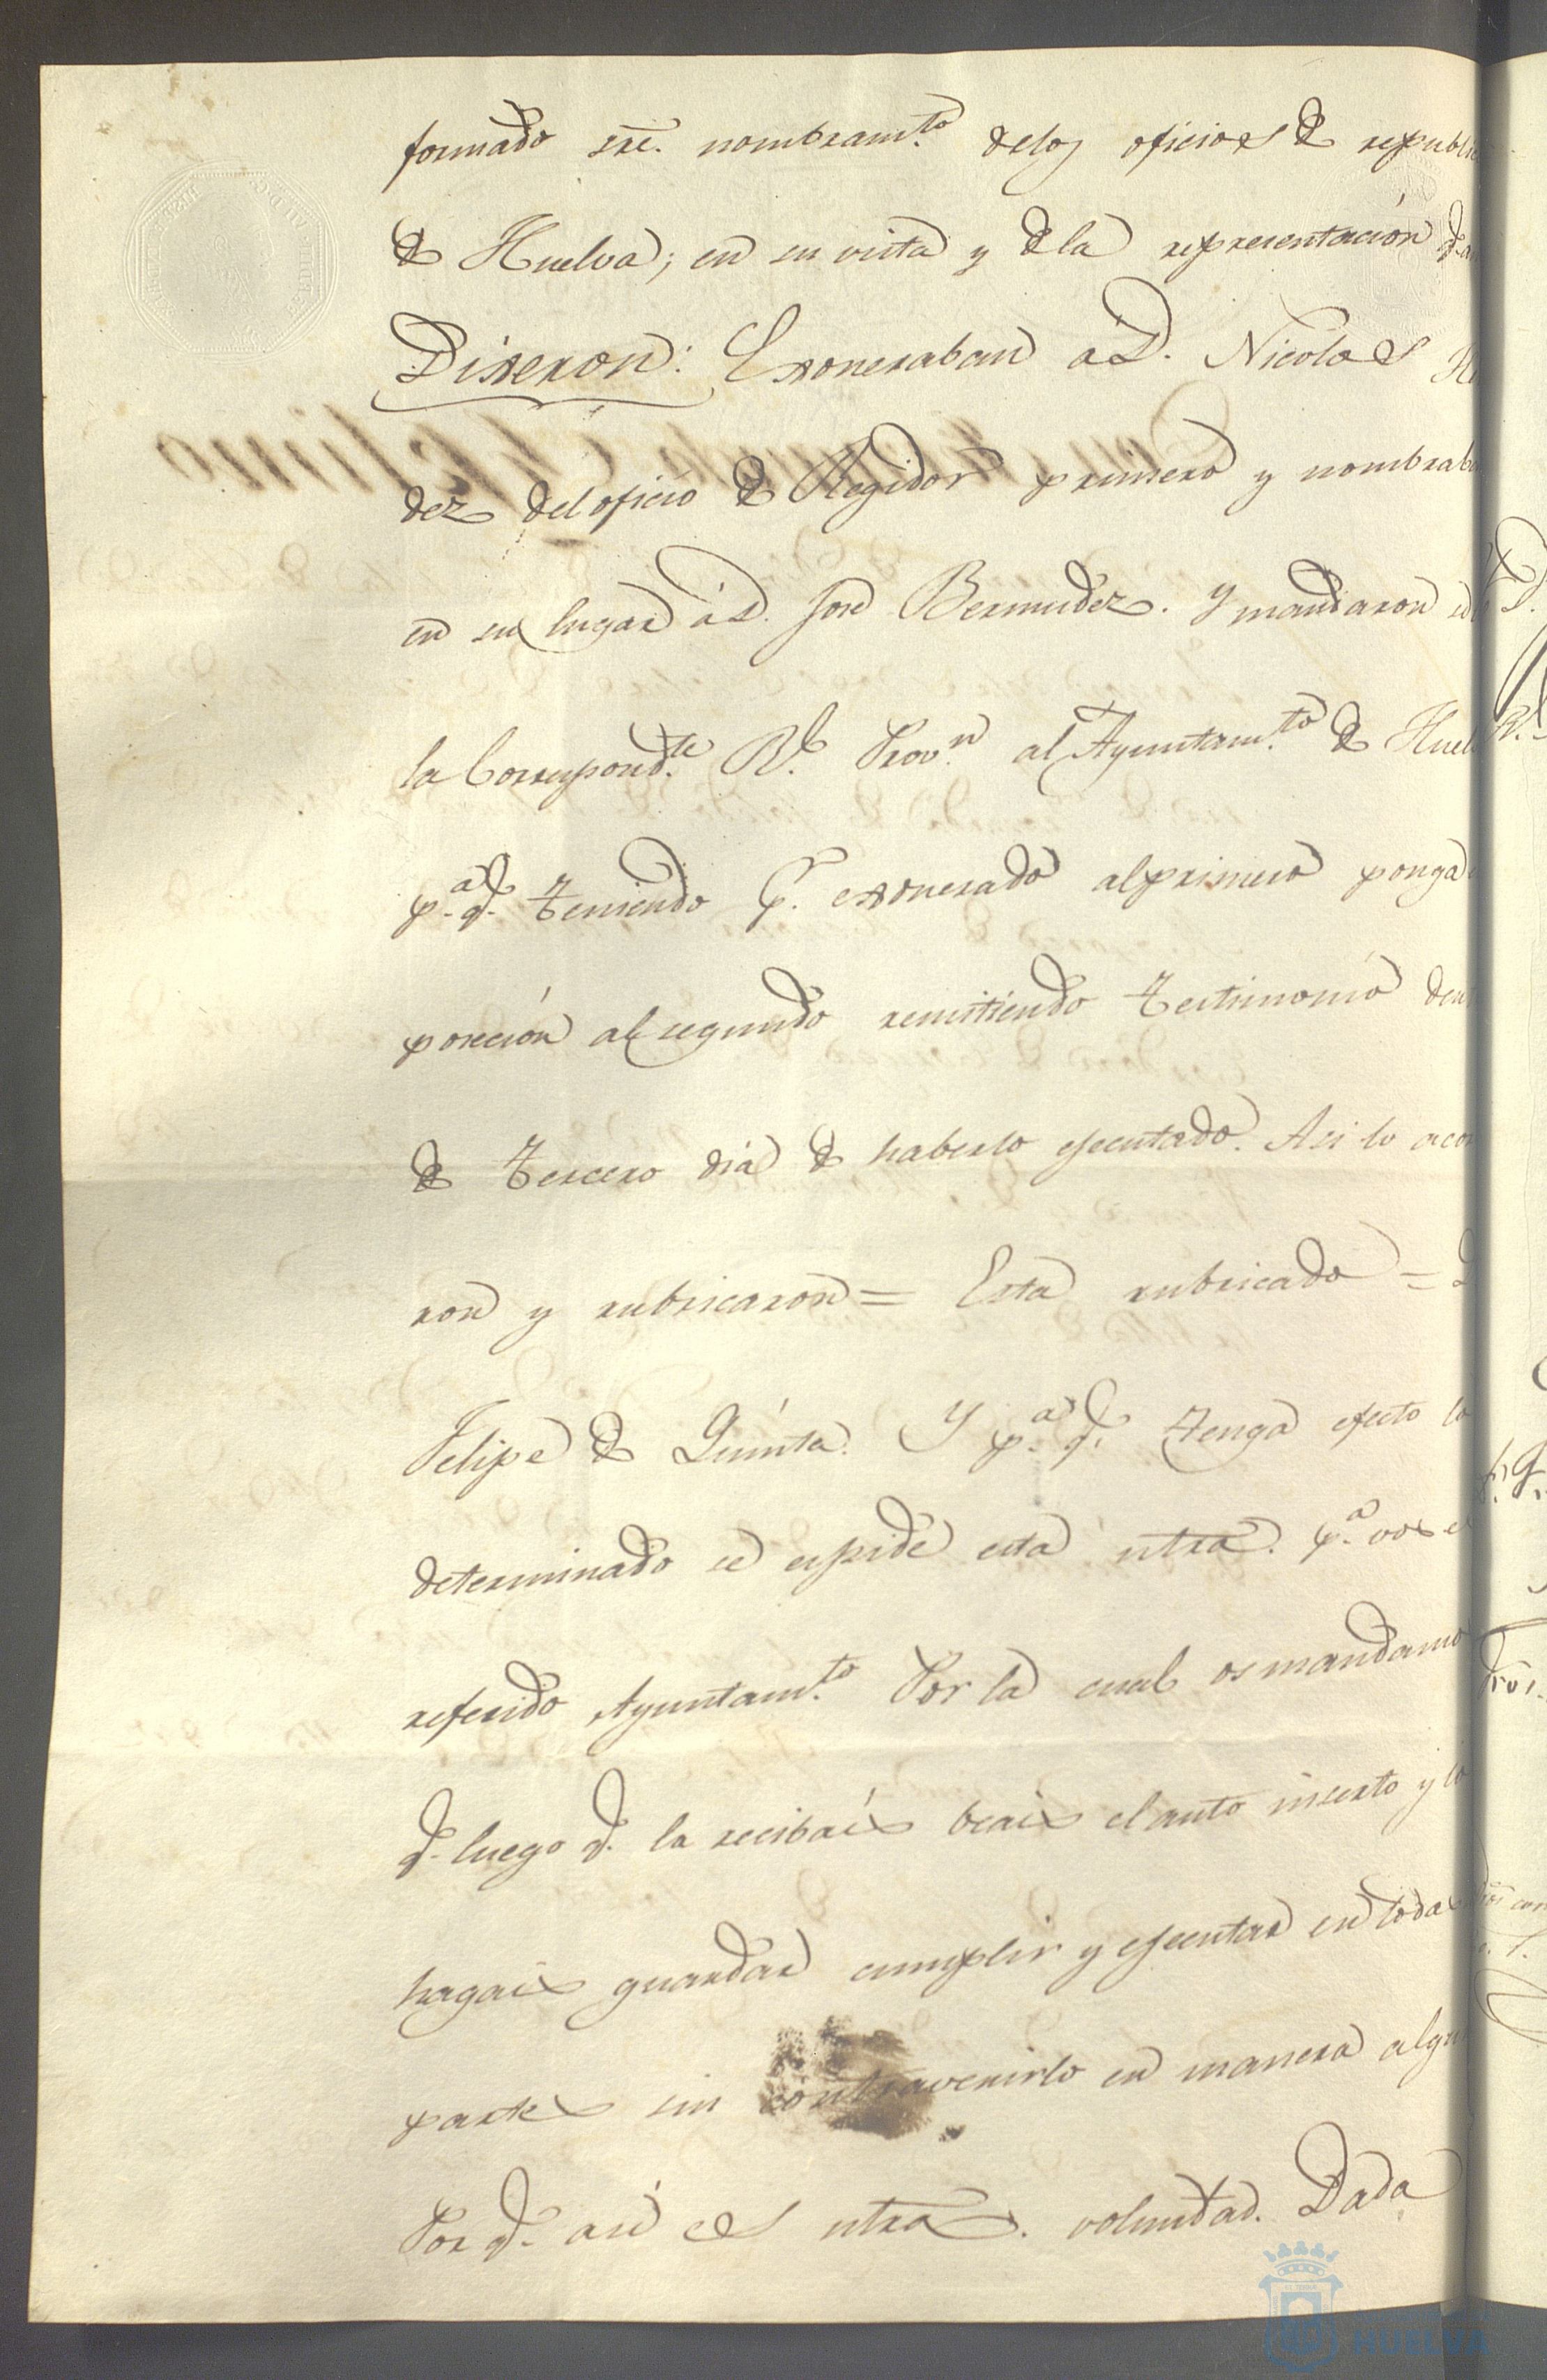 formado sre. nombramto. delos oficios de republi
de Huelva; en su vista y dela representación q.
Dixeron: Exoneraban a D. Nicolas
dez del oficio de Regidor primero y nombrab
en su lugar á D. José Bermudez. Y mandaron
la Correspondte. Rl. Provn. al Ayuntamto. de Huel
pa. q. teniendo pr. exonerado al primero ponga
poseción al segundo remitiendo testimonio den
de tercero diá de haberlo ejecutado. Asi lo aco
ron y rubricaron = Esta rubricado =
Felipe de Quinta. Y pa. q. tenga efecto lo
determinado se espide esta ntra. pa. vos el
referido Ayuntamto. Por la cual os mandamo
q. luego q. la recibais beais el auto inserto y lo
hagais guardar cumplir y ejecutar en todas
partes sin contravenirlo en manera algu
Por q. asi es ntra. voluntad. Dada
HUELVA